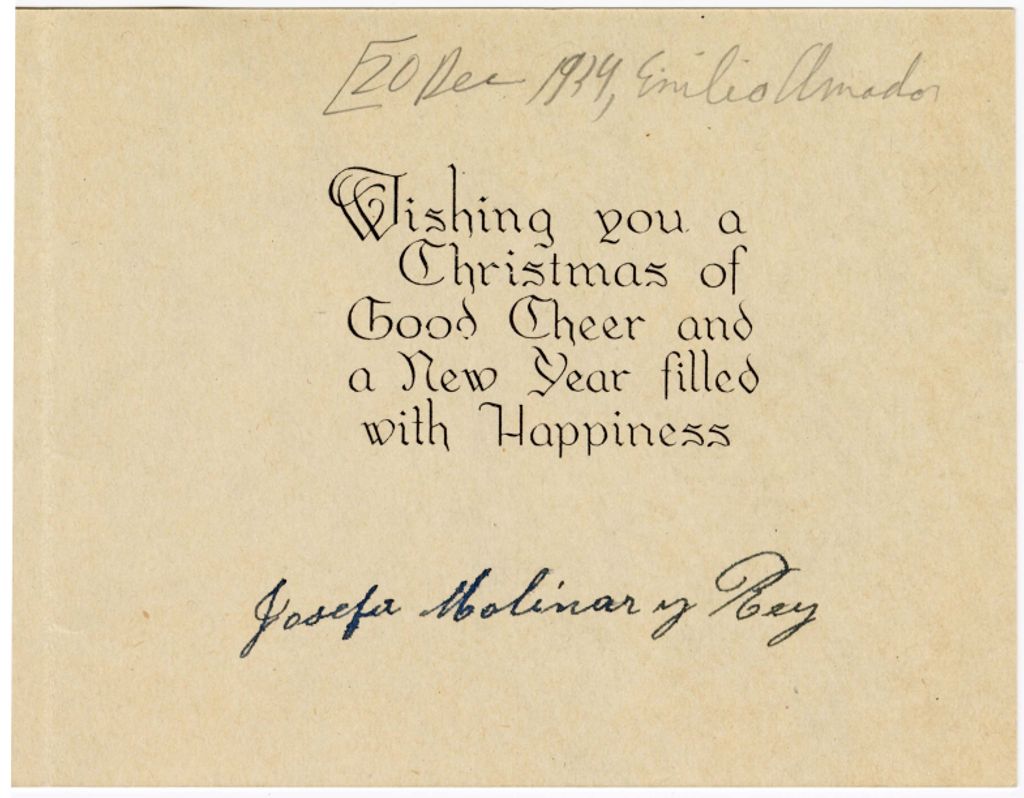 [20 Dec 1934, Emilio Amador
Wishing you a
Christmas of
Good Cheer and
a New Year filled
with Happiness
Josefa Molinar y Rey